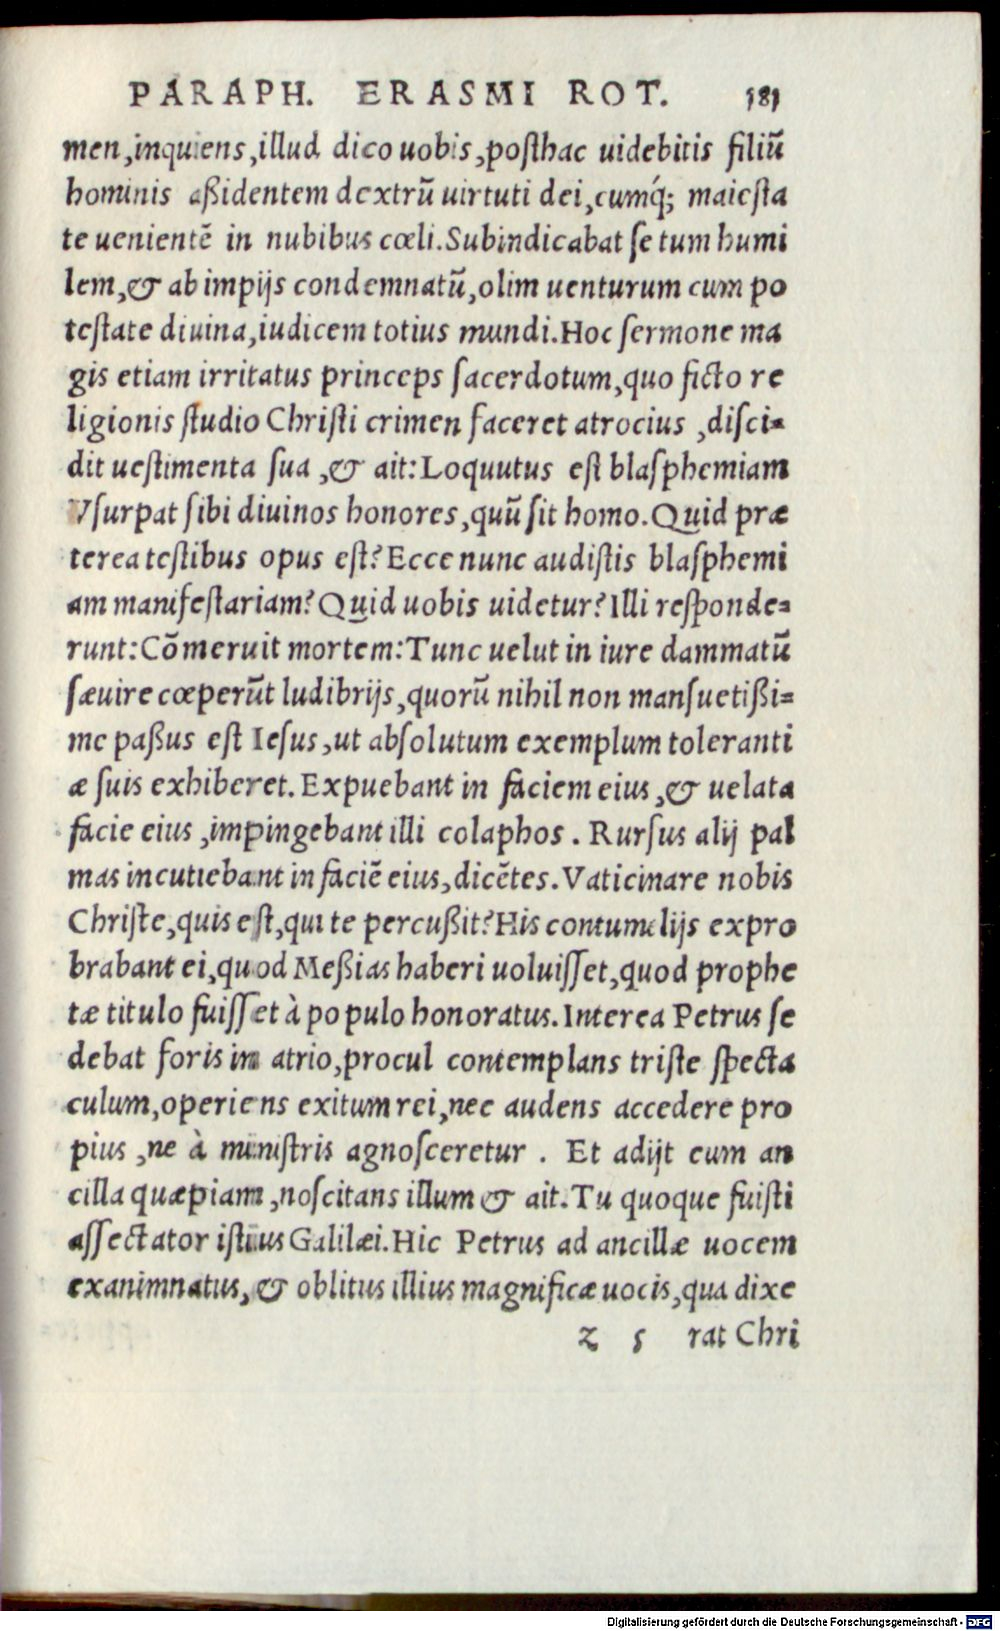 PARAPH. ERASMI ROT. 581
men,inquiens,illud dico uobis,posthac uidebitis filiũ
hominis aßidentem dextrũ uirtuti dei,cumq́; maiesta
te uenientē in nubibus cœli.Subindicabat se tum humi
lem,& ab impijs condemnatũ,olim uenturum cum po
testate diuina,iudicem totius mundi.Hoc sermone ma
gis etiam irritatus princeps sacerdotum,quo ficto re
ligionis studio Christi crimen faceret atrocius ,disci=
dit uestimenta sua ,& ait:Loquutus est blasphemiam
Vsurpat sibi diuinos honores,quũ sit homo.Quid præ
terea testibus opus est?Ecce nunc audistis blasphemi
am manifestariam?Quid uobis uidetur?Illi responde=
runt:Cõmeruit mortem:Tunc uelut in iure dammatũ
sæuire cœperũt ludibrijs,quorũ nihil non mansuetißi=
me paßus est Iesus,ut absolutum exemplum toleranti
æ suis exhiberet.Expuebant in faciem eius ,& uelata
facie eius ,impingebant illi colaphos . Rursus alij pal
mas incutiebant in faciē eius,dicētes.Vaticinare nobis
Christe,quis est,qui te percußit?His contumelijs expro
brabant ei,quod Meßias haberi uoluisset,quod prophe
tæ titulo fuisset à populo honoratus.Interea Petrus se
debat foris in atrio,procul contemplans triste specta
culum,operiens exitum rei,nec audens accedere pro
pius ,ne à ministris agnosceretur . Et adijt eum an
cilla quæpiam ,noscitans illum & ait.Tu quoque fuisti
assectator istius Galilæi.Hic Petrus ad ancillæ uocem
exanimnatus,& oblitus illius magnificæ uocis,qua dixe
z 5 rat Chri
Digitalisierung gefördert durch die Deutsche Forschungsgemeinschaft - DFG